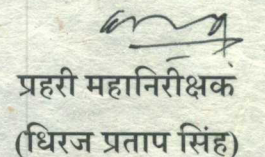 प्रहरी महानिरीक्षक
(धिरज प्रताप सिंह)